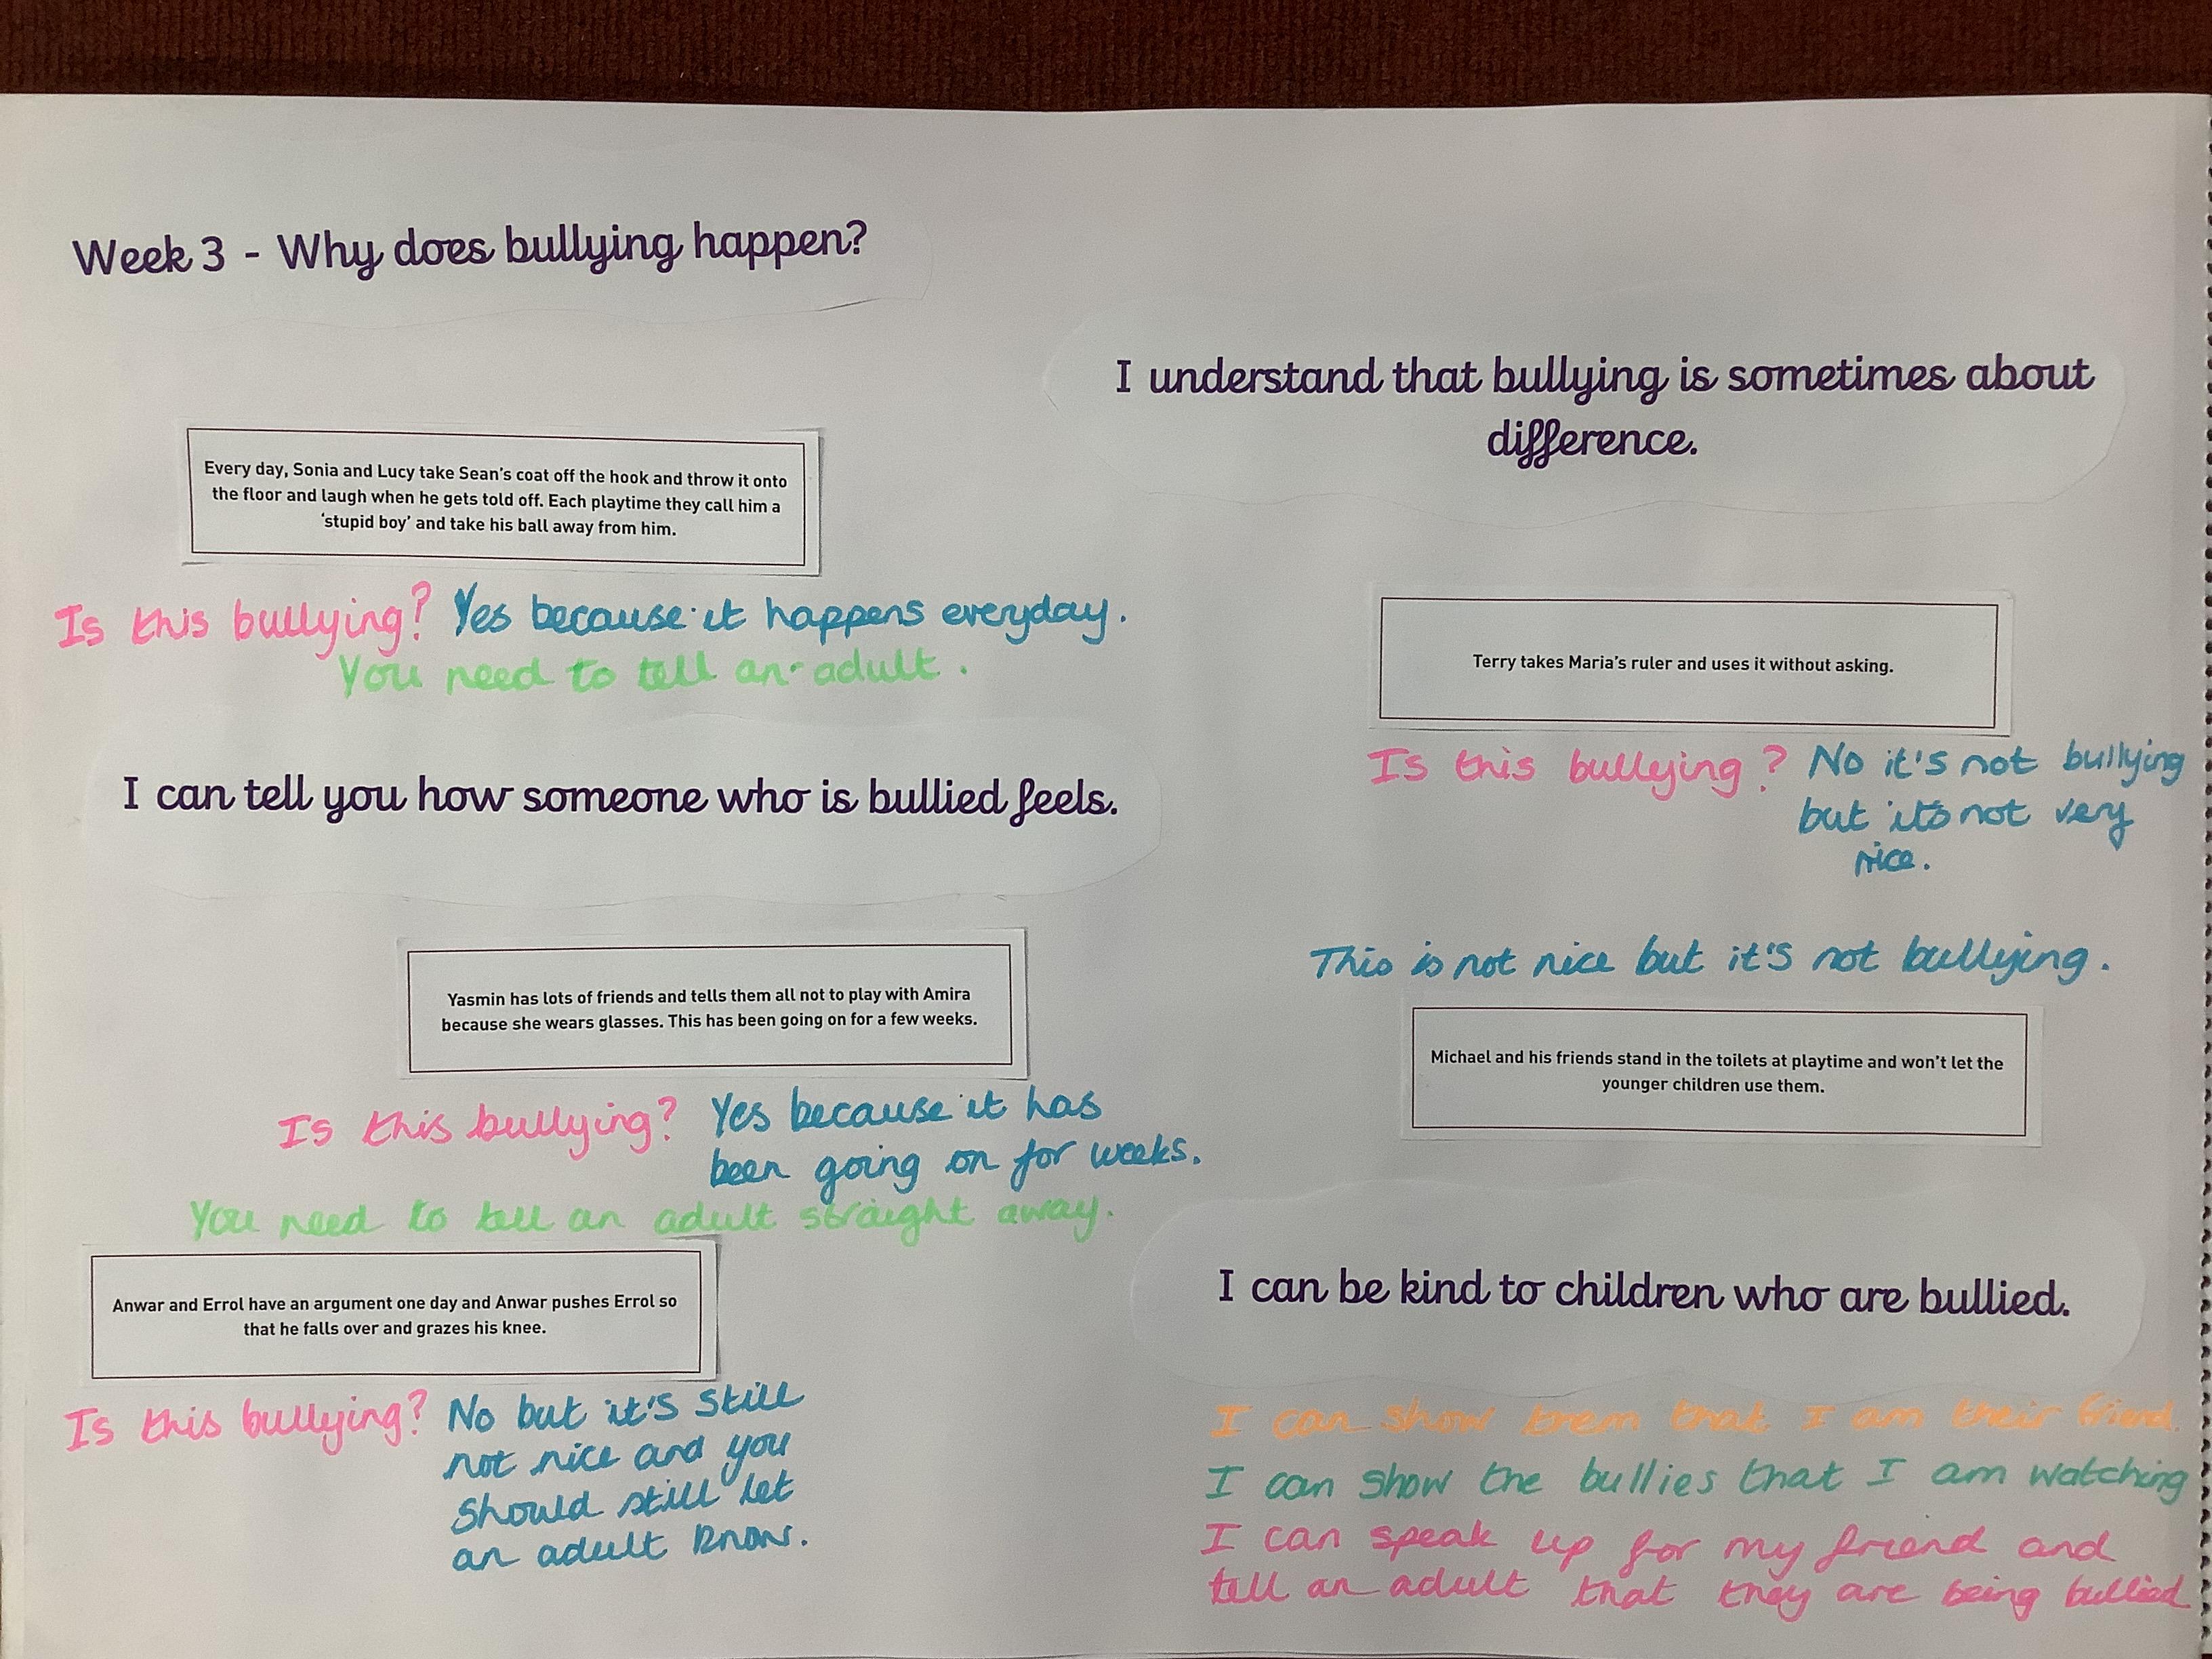 Week 3 - Why does bullying happen?
Every day, Sonia and Lucy take Sean's coat off the hook and throw it onto
the floor and laugh when he gets told off. Each playtime they call him a
'stupid boy' and take his ball away from him.
Is this bullying? Yes because it happens everyday.
You need to tell an adult.
I can tell you how someone who is bullied feels.
Yasmin has lots of friends and tells them all not to play with Amira
because she wears glasses. This has been going on for a few weeks.
Is this bullying? Yes because it has
been going on for weeks.
You need to tell an adult straight away.
Anwar and Errol have an argument one day and Anwar pushes Errol so
that he falls over and grazes his knee.
Is this bullying? No but it's still
not nice and you
should still let
an adult know.
I understand that bullying is sometimes about
difference.
Terry takes Maria's ruler and uses it without asking.
Is this bullying? No it's not bullying
but it's not very
nice.
This is not nice but it's not bullying.
Michael and his friends stand in the toilets at playtime and won't let the
younger children use them.
I can be kind to children who are bullied.
I can show them that I am their friend.
I can show the bullies that I am watching
I can speak up for my friend and
tell an adult that they are being bullied